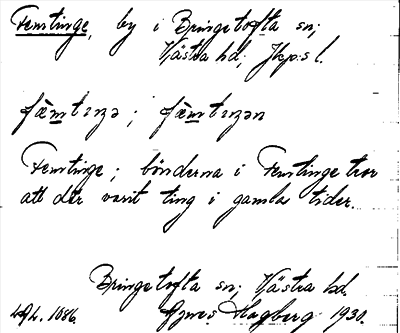 Femtinge, by i Bringetofta sn;
Västra hd; Jkp:s l.
fæmtıŋə ; fæmtıŋən
Femtinge; bönderna i Femtinge tror
att där varit ting i gamla tider.
Bringetofta sn; Västra hd.
1086. Agnes Hagberg 1930.